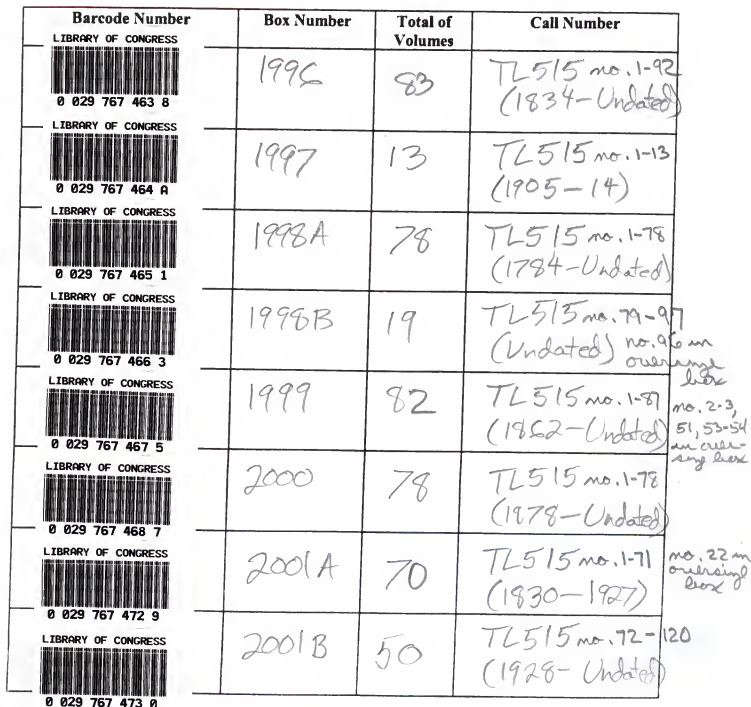 Barcode Number Box Number Total of Volumes Call Number
LIBRARY OF CONGRESS
0 029 767 463 8
1996 83 TL515 no. 1-92
(1834-Undated)
LIBRARY OF CONGRESS
0 029 767 464 A
1997 13 TL515 no. 1-13
(1905-14)
LIBRARY OF CONGRESS
0 029 767 465 1
1998A 78 TL515 no. 1-78
(1784-Undated)
LIBRARY OF CONGRESS
0 029 767 466 3
1998B 19 TL515 no. 79-97
(Undated) no. 96 in
oversize
box
LIBRARY OF CONGRESS
0 029 767 467 5
1999 82 TL515 no. 1-87
(1862-Undated)
no. 2-3,
51, 53-54
in over-
sing box
LIBRARY OF CONGRESS
0 029 767 468 7
2000 78 TL515 no. 1-78
(1878-Undated)
LIBRARY OF CONGRESS
0 029 767 472 9
2001A 70 TL515 no. 1-71
(1830-1927)
no. 22 in
oversize
box
LIBRARY OF CONGRESS
0 029 767 473 0
2001B 50 TL515 no. 72-120
(1928- Undated)